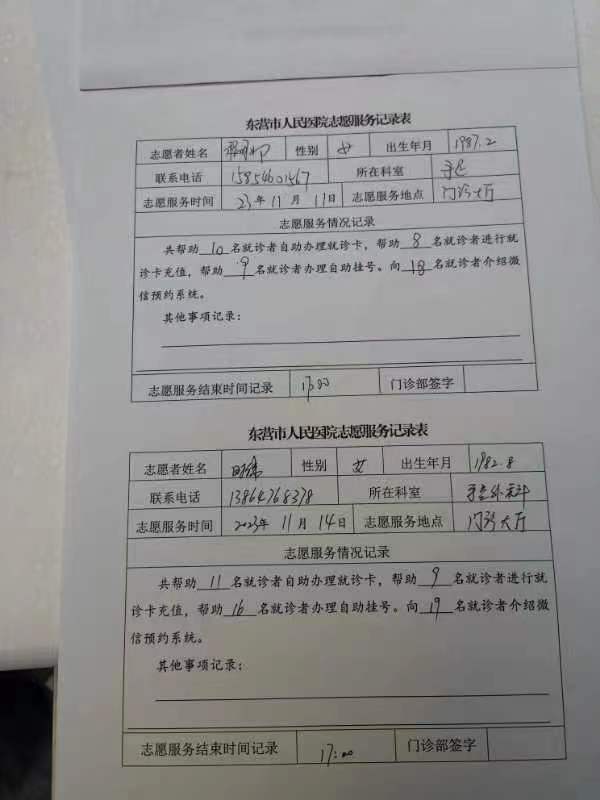 东营市人民医院志愿服务记录表
志愿者姓名 性别 女 出生年月 1987.2
联系电话 15854601567 所在科室
志愿服务时间 23年11月11日 志愿服务地点 门诊大厅
志愿服务情况记录
共帮助10名就诊者自助办理就诊卡，帮助8名就诊者进行就
诊卡充值，帮助9名就诊者办理自助挂号。向18名就诊者介绍微
信预约系统。
其他事项记录：
志愿服务结束时间记录 17:00 门诊部签字
东营市人民医院志愿服务记录表
志愿者姓名 性别 女 出生年月 1982.8
联系电话 13864768378 所在科室
志愿服务时间 2023年11月14日 志愿服务地点 门诊大厅
志愿服务情况记录
共帮助11名就诊者自助办理就诊卡，帮助9名就诊者进行就
诊卡充值，帮助16名就诊者办理自助挂号。向19名就诊者介绍微
信预约系统。
其他事项记录：
志愿服务结束时间记录 17:00 门诊部签字